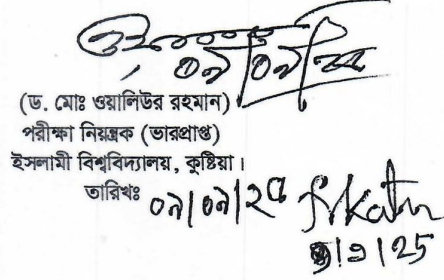 ০৯/০৯/২৫
(ড. মোঃ ওয়ালিউর রহমান)
পরীক্ষা নিয়ন্ত্রক (ভারপ্রাপ্ত)
ইসলামী বিশ্ববিদ্যালয়, কুষ্টিয়া।
তারিখঃ ০৯/০৯/২৫
9/9/25